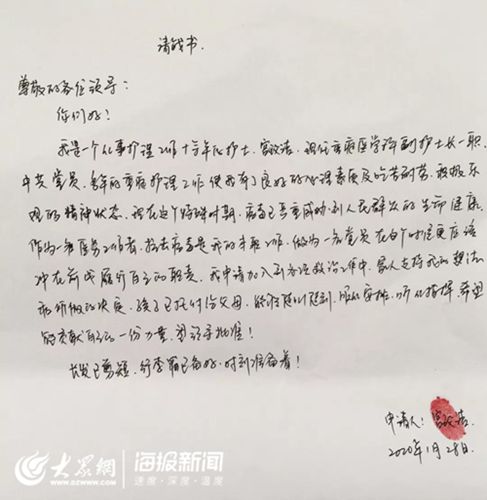 请战书.
尊敬的各位领导：
你们好！
我是一个从事护理工作十余年的护士,宫政洁,现任重症医学科副护士长一职
中共党员,多年的重症护理工作使我有了良好的心理素质及吃苦耐劳,积极乐
观的精神状态,现在这个特殊时期,病毒已严重威胁到人民群众的生命健康,
作为一名医务工作者,抗击病毒是我的本职工作,做为一名党员在这个时候更应该
冲在前线履行自己的职责,我申请加入到各项救治工作中,家人支持我的想法
和所做的决定,孩子已托付给父母,能够随叫随到,服从安排,听从指挥,希望
能贡献自己一份力量,望领导批准！
长发已剪短,行李箱已备好,时刻准备着！
申请人：宫政洁
2020年1月28日.
大众网 海报新闻
WWW.DZWWW.COM 速度·深度·温度